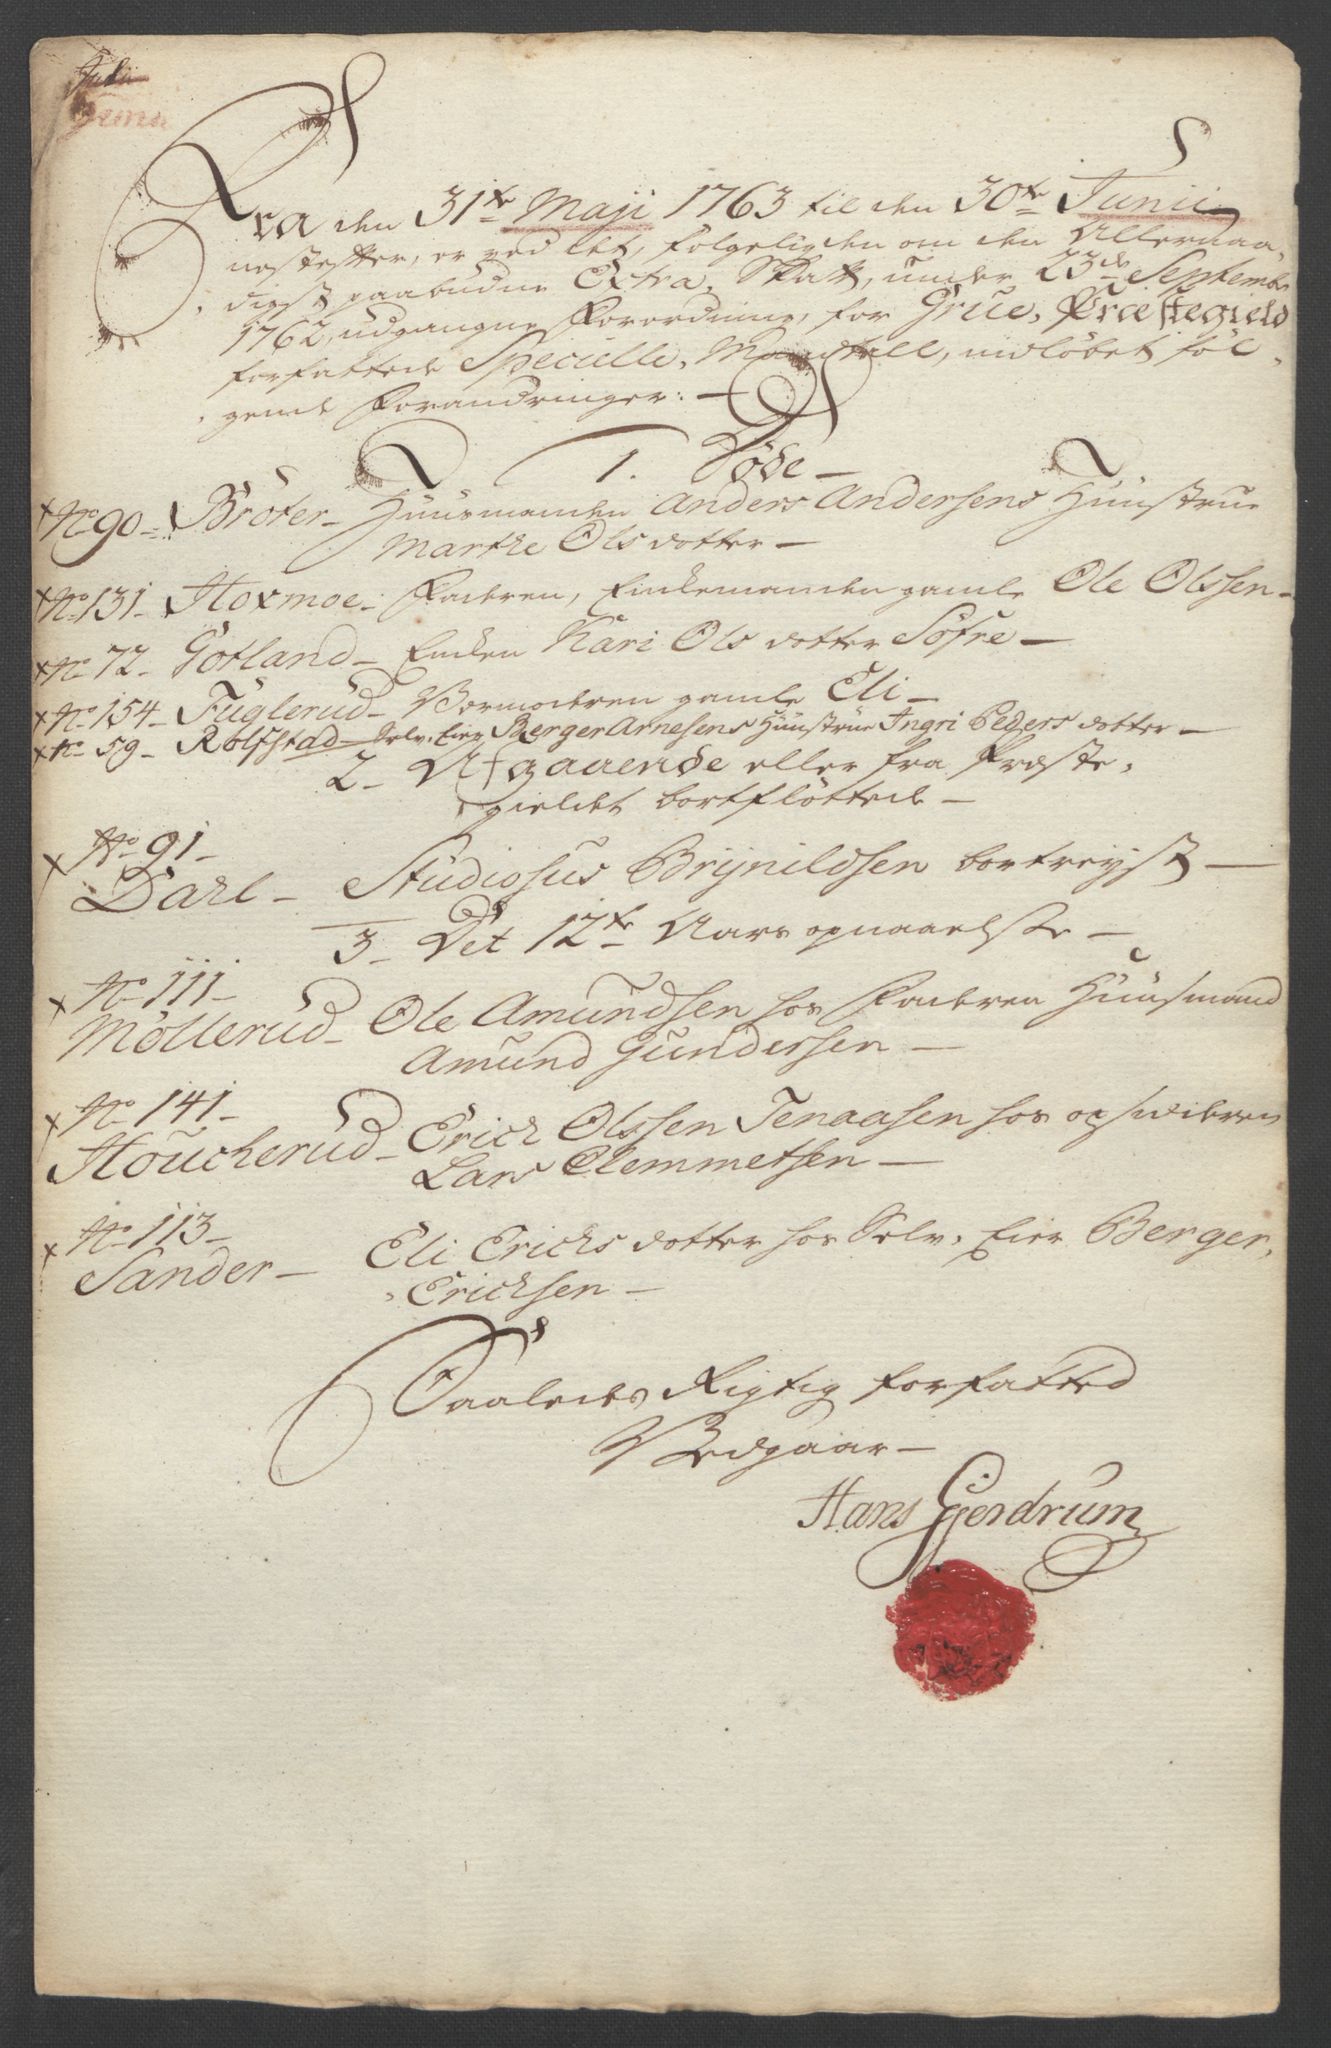 Fra den 31te Maji 1763 til den 30te Junii
nestefter, er ved det, følgelig den om den Allernaa-
digst paabudne Extra Skatt, under 23de Septembr
1762, udgangne Forordning, for Grue-Præstegield
forfattede Specielle-Mandtall, indløbet føl-
gende Forandringer:-
1. Døde-
x No 90- Bröter- Huusmanden Anders Andersens Huustrue
Marthe Olsdotter-
x No 131- Hoxmoe- Faderen, Enkemanden gamle Ole Olssen-
x No 72- Gotland- Enken Kari Olsdotter Söfre-
x No 154- Fuglerud- Værmoderen gamle Eli-
x No 59- Rolfstad- Selv-Eier Berger Arnesens Huustrue Ingri Pedersdotter-
2- Afgaaende eller fra Præste-
gieldet bortfløttede-
x No 91-
Dahl- Studiosus Brijnildsen bortreyst-
3- Det 12te Aars opnaaelse-
x No 111-
Möllerud- Ole Amundsen hos Faderen Huusmand
Amund Gundersen-
x No 141-
Houcherud- Erich Olssen Tenaasen hos opsideren
Lars Clemmetsen-
x No 113-
Sander- Eli Erichsdotter hos Selv-Eier Berger
Erichsen-
Saaledes Rigtig forfatted
Vedgaar-
Hans Gjerdrum